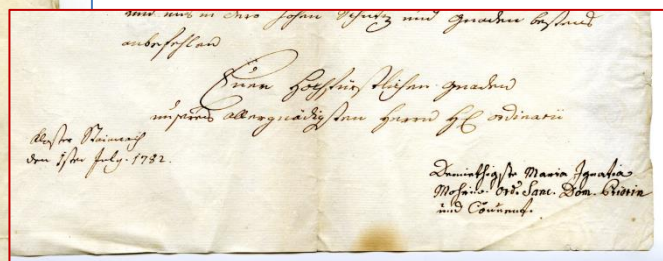 und uns in dero hohen Schutz und Gnaden bestens
anbefehlen
Euer Hochfürstlichen Gnaden
unsers allergnädigsten Herrn H ordinarii
Kloster Steinach
den 1ten July. 1782.
Demiethigste Maria Ignatia
Ord. Sanc. Dom. Priorin
und Convent.